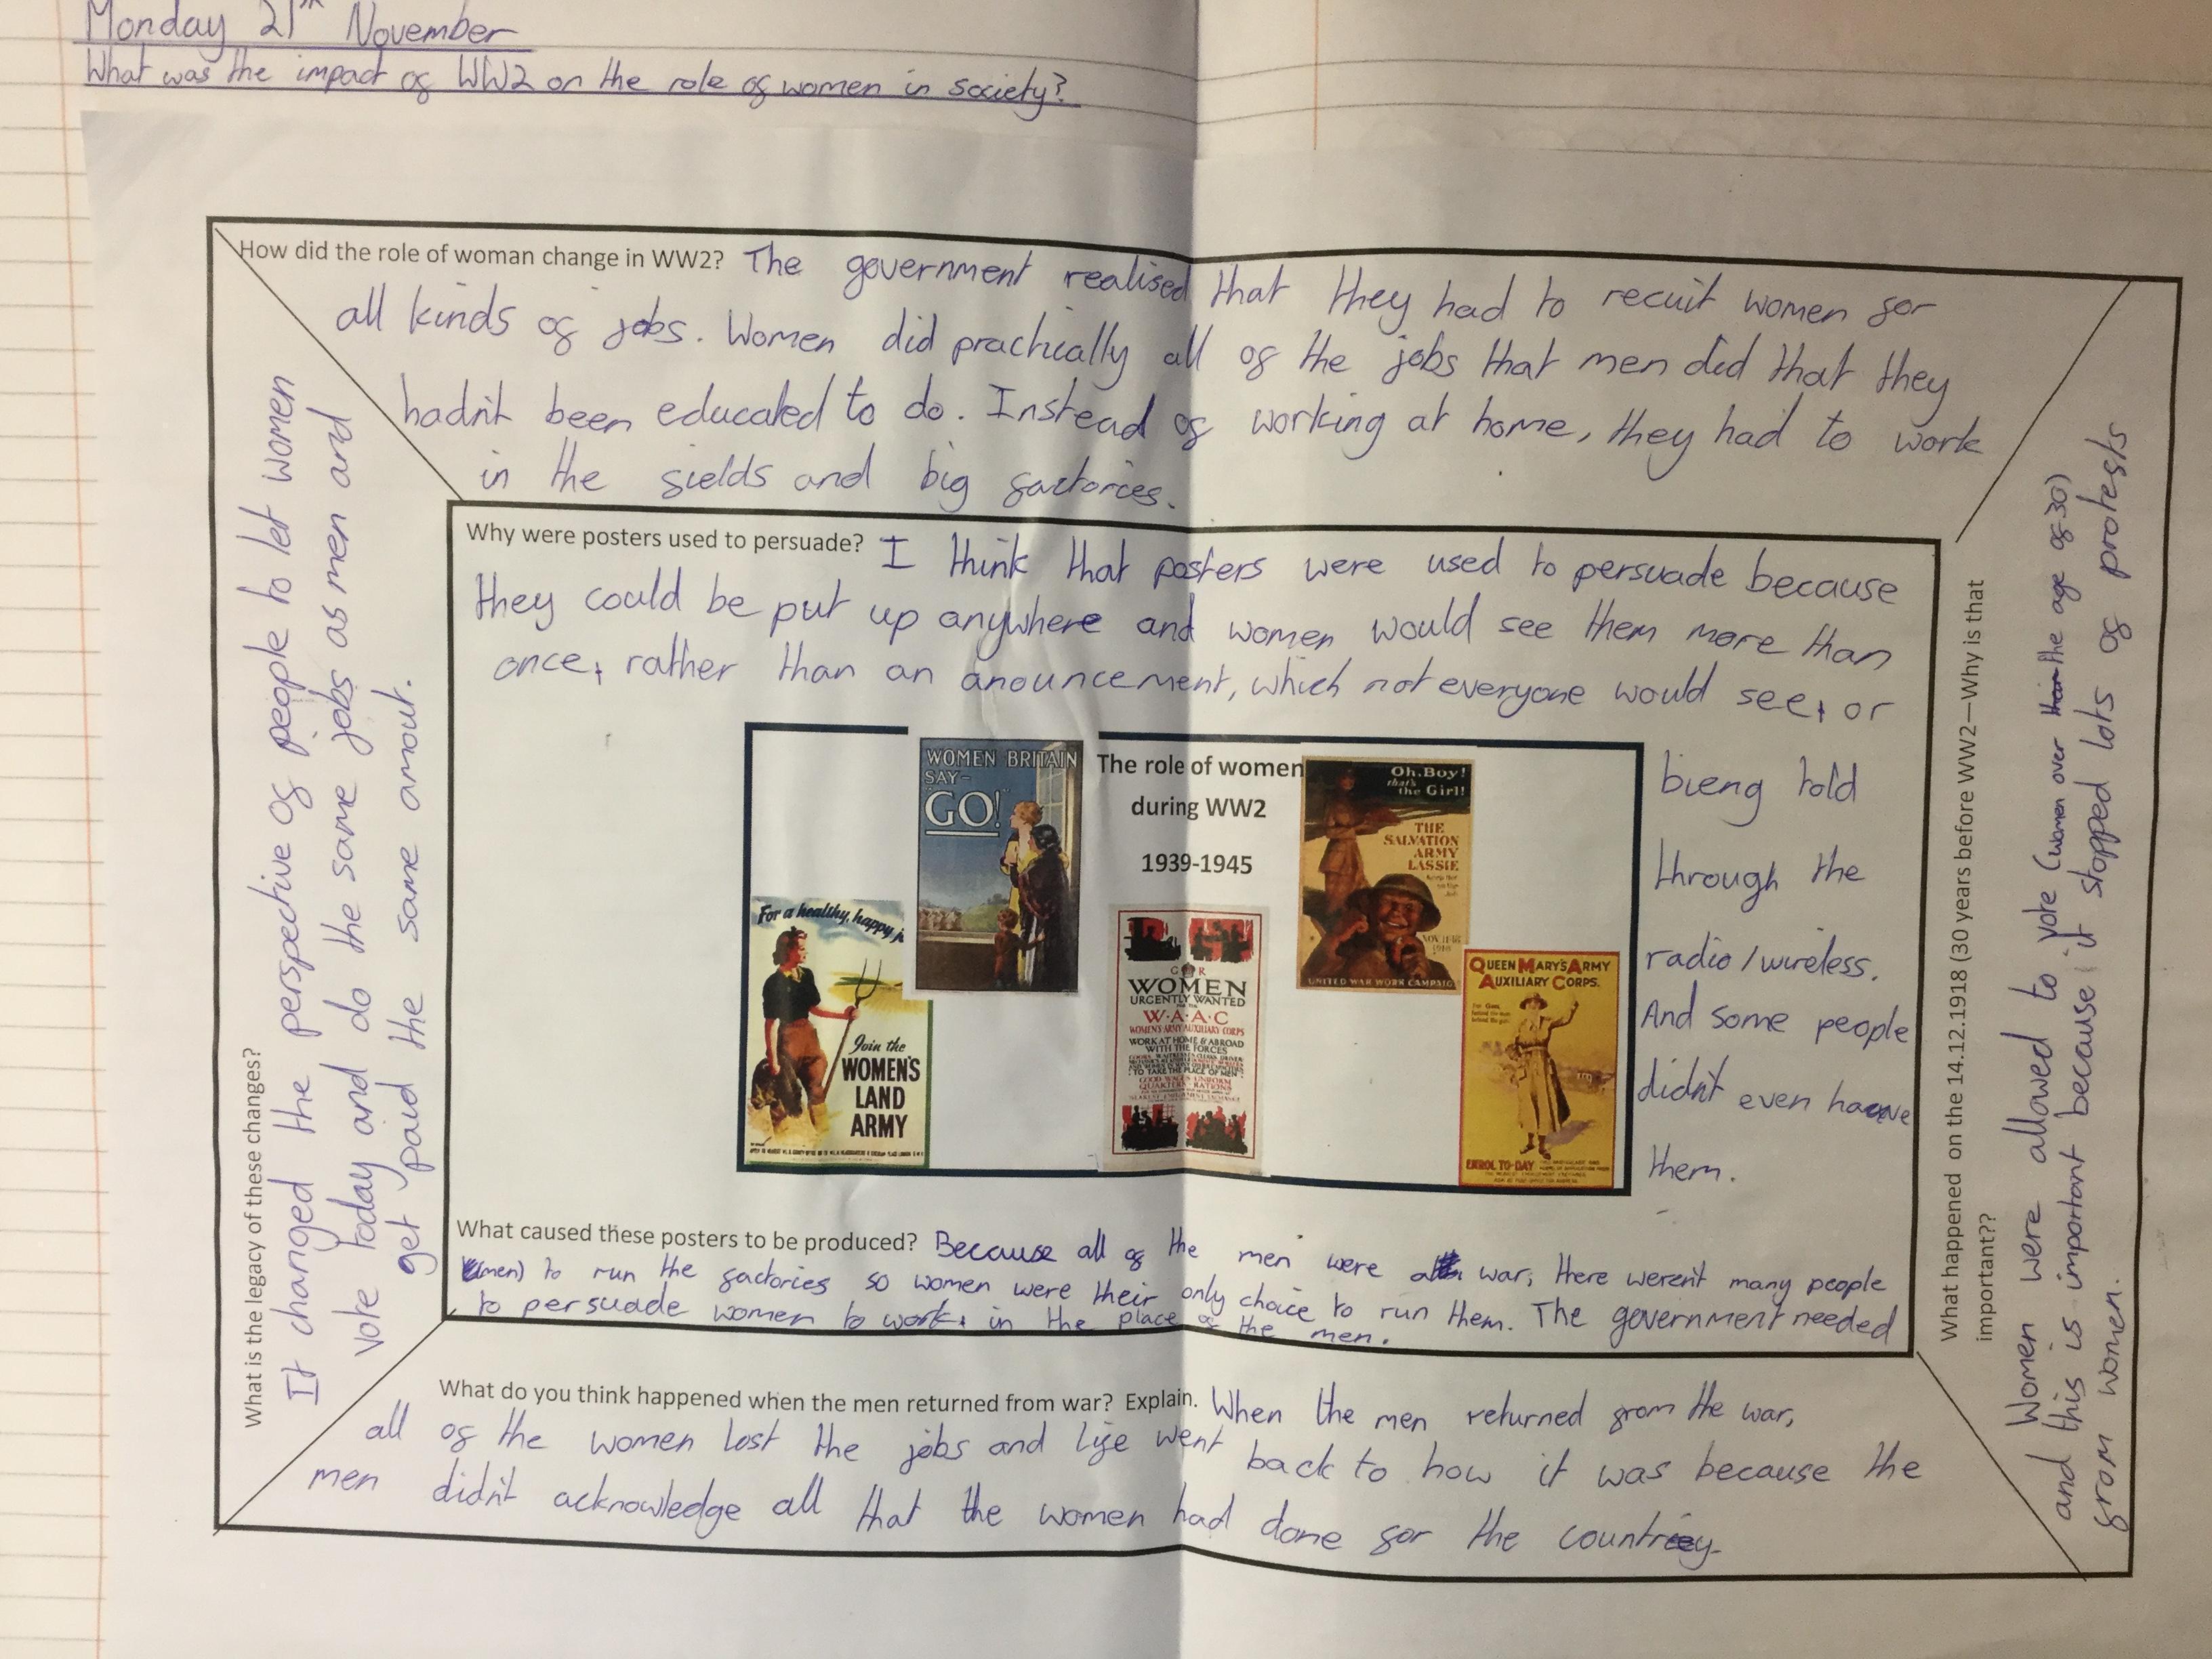 Monday 21th November
What was the impact of WW2 on the role of women in society?
How did the role of woman change in WW2? The government realised that they had to recuit women for
all kinds of jobs. Women did practically all of the jobs that men did that they
hadn't been educated to do. Instead of working at home, they had to work
in the fields and big factories.
Why were posters used to persuade? I think that posters were used to persuade because
they could be put up anywhere and women would see them more than
once, rather than an anouncement, which not everyone would see, or
bieng told
through the
radio/wireless.
And some people
didn't even have
them.
WOMEN BRITAIN
SAY-
"GO!"
The role of women
during WW2
1939-1945
Oh, Boy!
that's
the Girl!
THE
SALVATION
ARMY
LASSIE
UNITED WAR WORK CAMPAIG
For a healthy, happy j
Join the
WOMEN'S
LAND
ARMY
G R
WOMEN
URGENTLY WANTED
FOR THE
W·A·A·C
WOMEN'S ARMY AUXILIARY CORPS
WORK AT HOME & ABROAD
WITH THE FORCES
TO TAKE THE PLACE OF MEN
GOOD WAGES UNIFORM
QUARTERS RATIONS
QUEEN MARY'S ARMY
AUXILIARY CORPS.
ENROL TO-DAY
What caused these posters to be produced? Because all of the men were at war, there weren't many people
(men) to run the factories so women were their only choice to run them. The government needed
to persuade women to work, in the place of the men.
What do you think happened when the men returned from war? Explain. When the men returned from the war,
all of the women lost the jobs and life went back to how it was because the
men didn't acknowledge all that the women had done for the country.
What is the legacy of these changes?
It changed the perspective of people to let women
vote today and do the same jobs as men and
get paid the same amout.
What happened on the 14.12.1918 (30 years before WW2—Why is that
important??
Women were allowed to vote (women over the age of 30)
and this is important because it stopped lots of protests
from women.